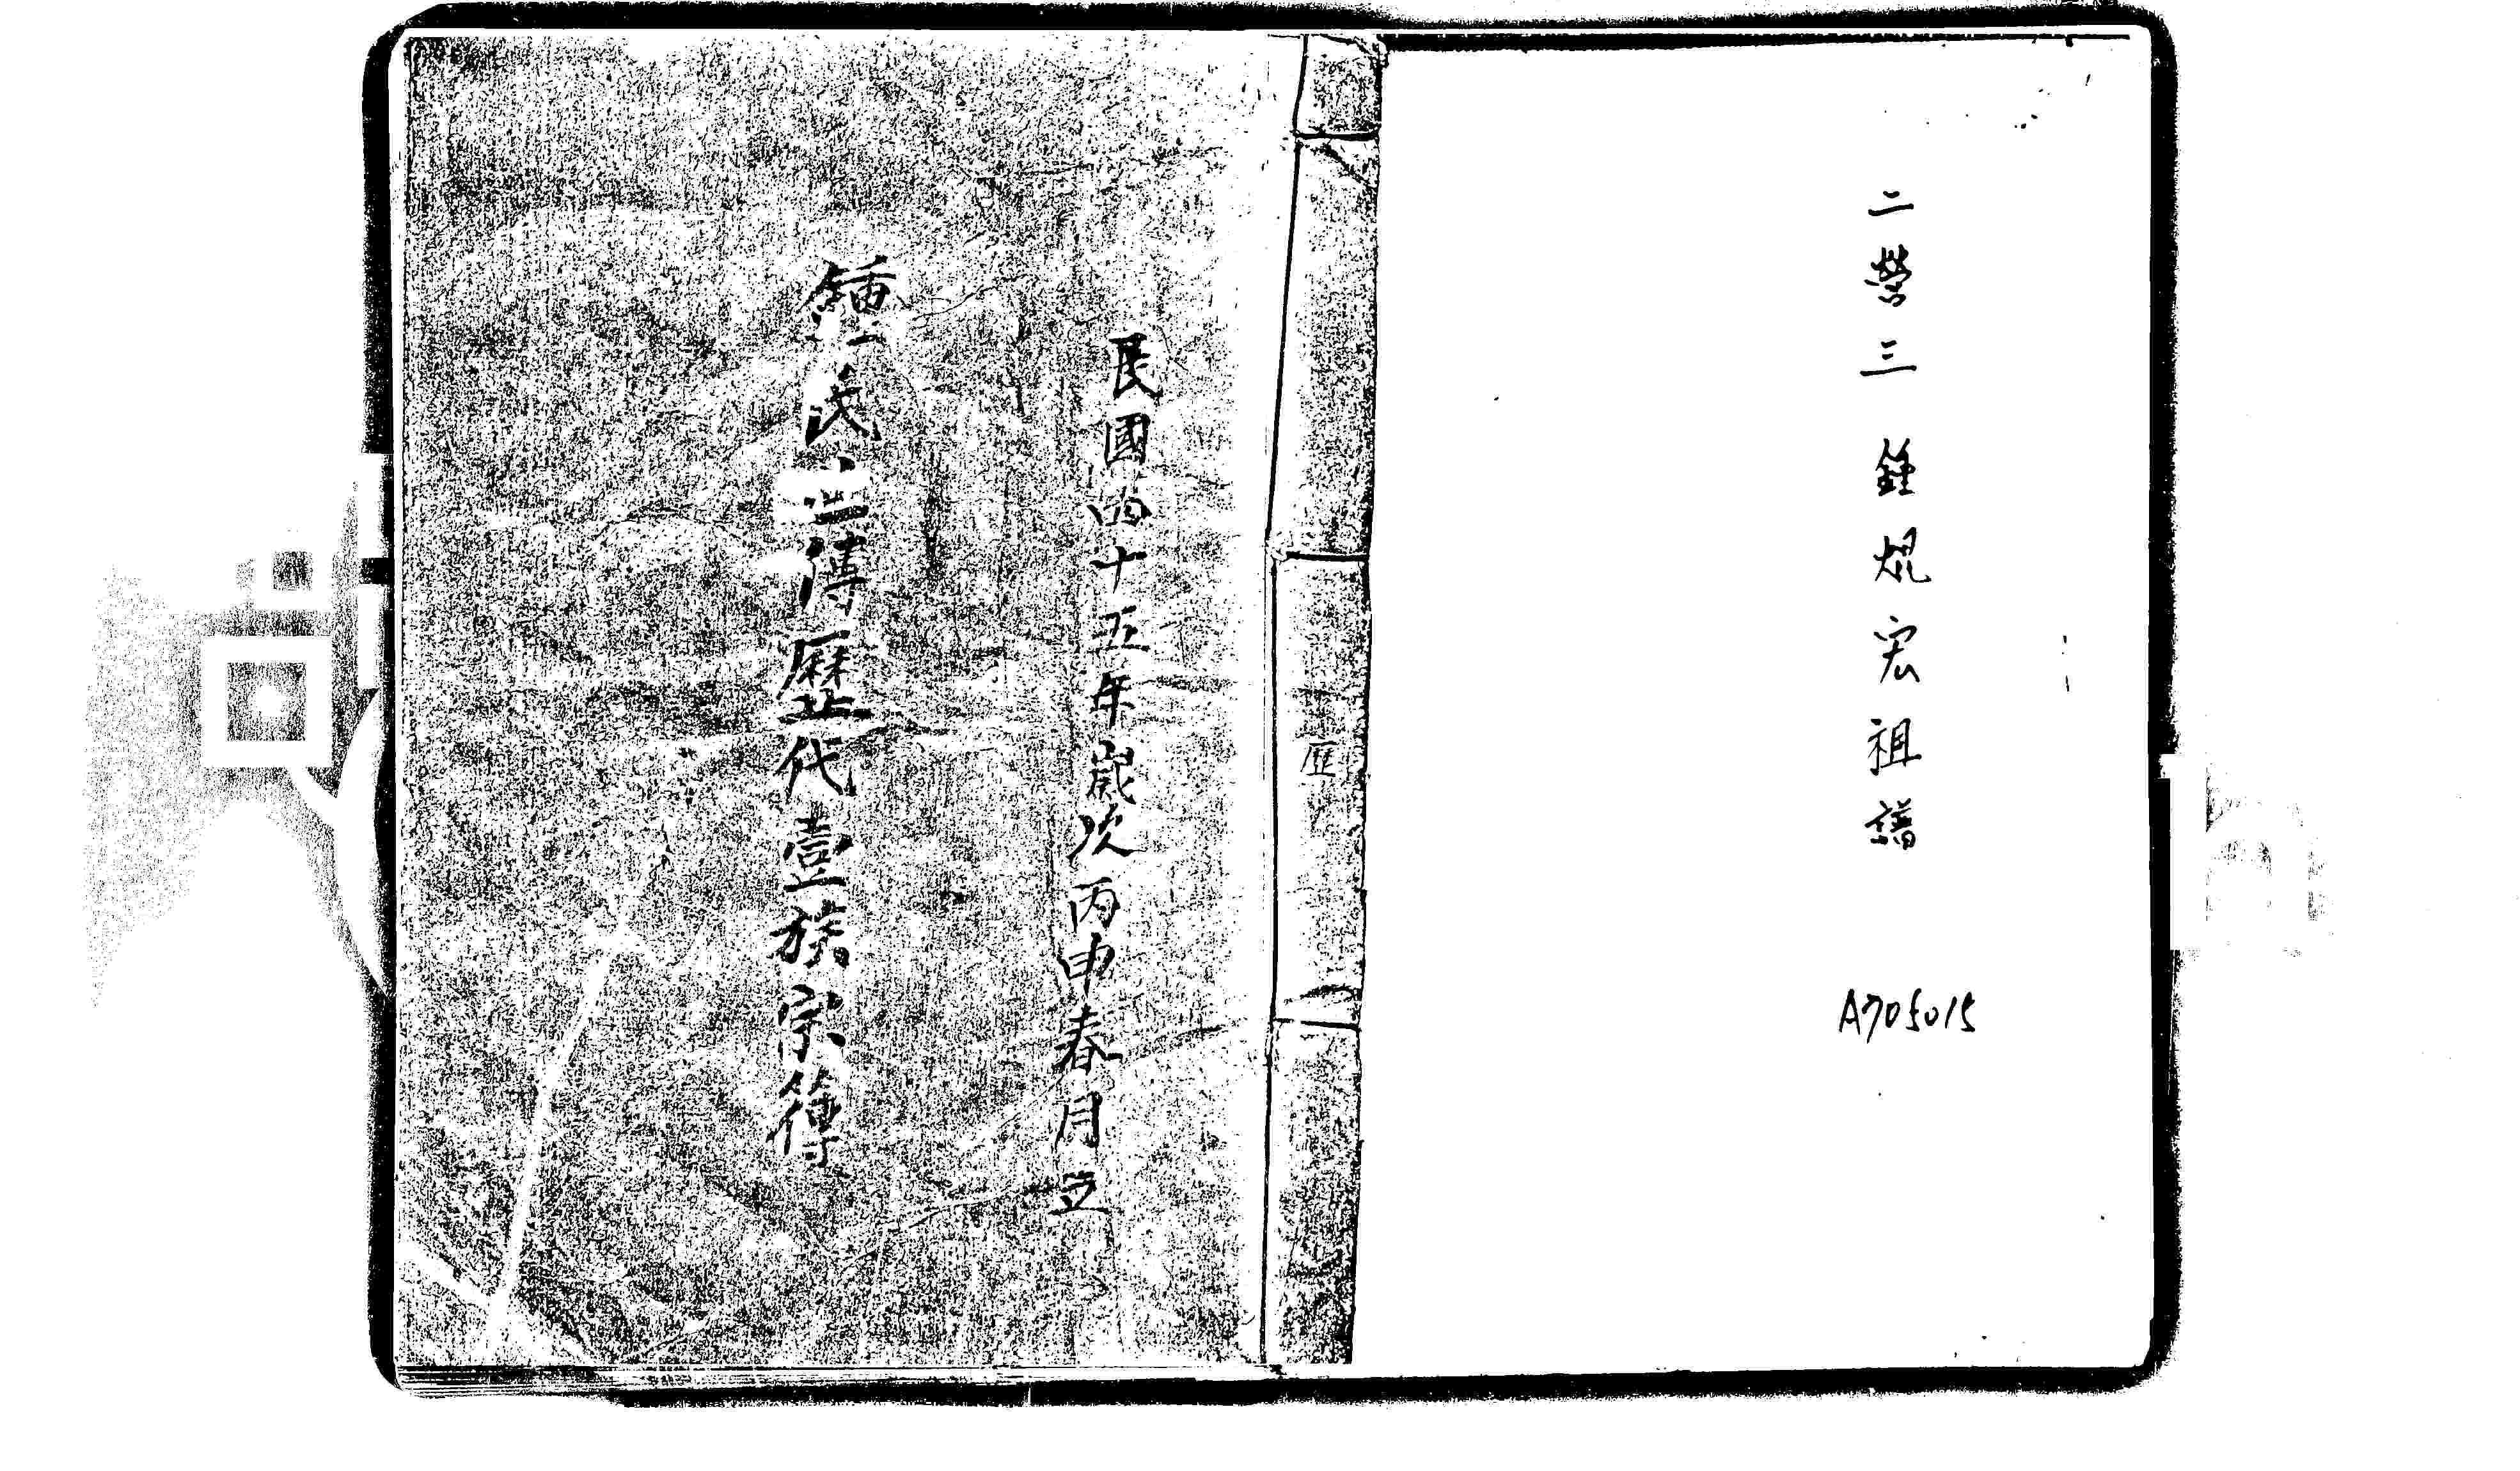 二營三鍾焜宏祖譜
A705015
歷
民國四十五年歲次丙申春月立
鍾氏世傳歷代壹族宗簿